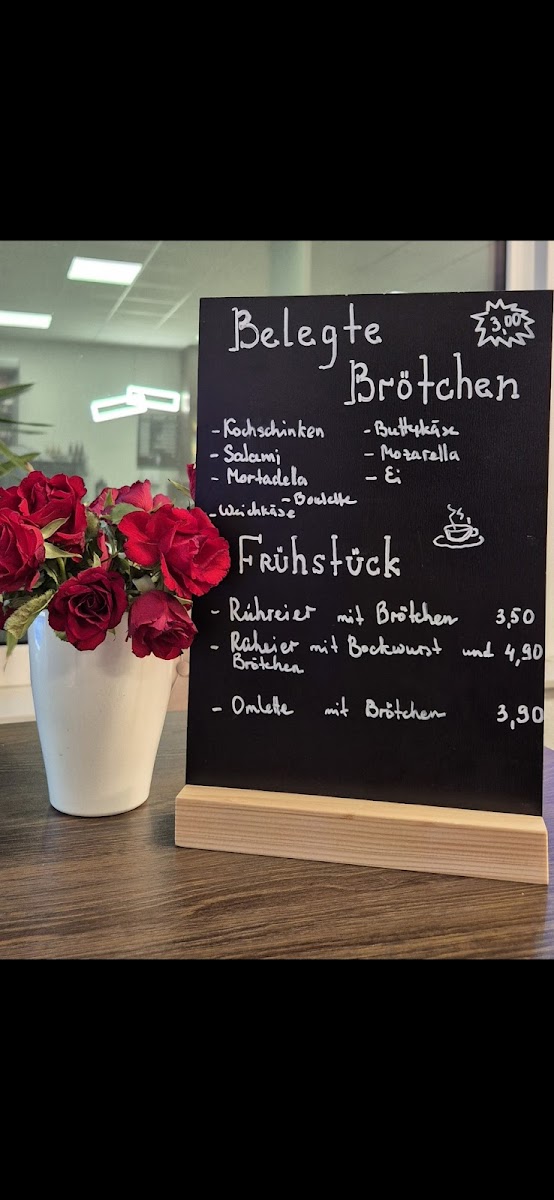 Belegte
Brötchen
3,00
- Kochschinken
- Salami
- Mortadella
- Boulette
- Weichkäse
- Butterkäse
- Mozarella
- Ei
Frühstück
- Rühreier mit Brötchen 3,50
- Raheier mit Bockwurst und 4,90
Brötchen
- Omlette mit Brötchen 3,90